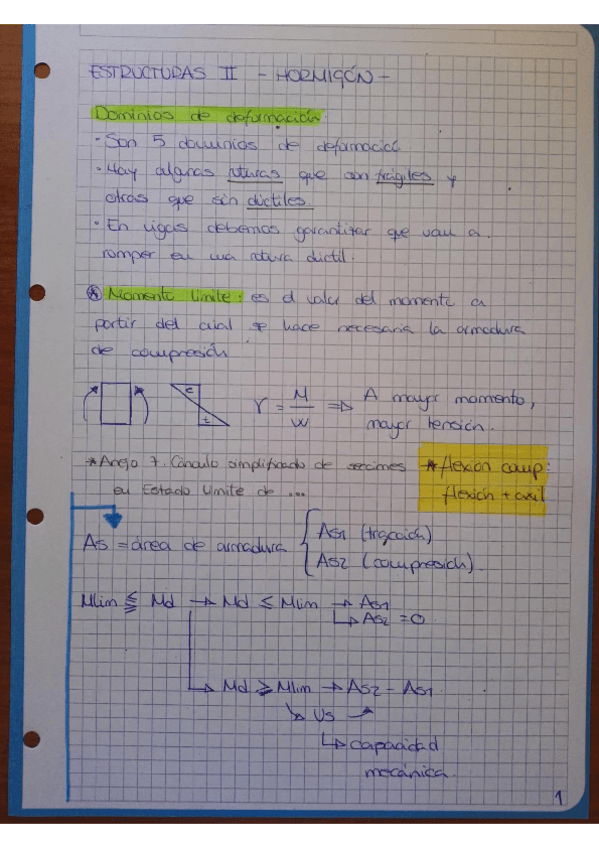 ESTRUCTURAS II - HORMIGÓN -
Dominios de deformación:
· Son 5 dominios de deformació
· Hay algunas roturas que son frágiles y
otras que sin dúctiles
· En vigas debemos garantizar que van a
romper en una rotura dúctil.
* Momento límite: es el valor del momento a
partir del cual se hace necesaria la armadura
de compresión
c
t
σ = M/W ⇒ A mayor momento,
mayor tensión.
* Anejo 7. Cánculo simplificado de secciones
en Estado Límite de ...
* flexión comp:
flexión + axil
As = área de armadura { As1 (tracción)
As2 (compresión)
Mlim ≦ Md → Md ≤ Mlim → As1
↳ As2 = 0
↳ Md ≥ Mlim → As2 - As1
↘ Us ↗
↳ capacidad
mecánica.
1